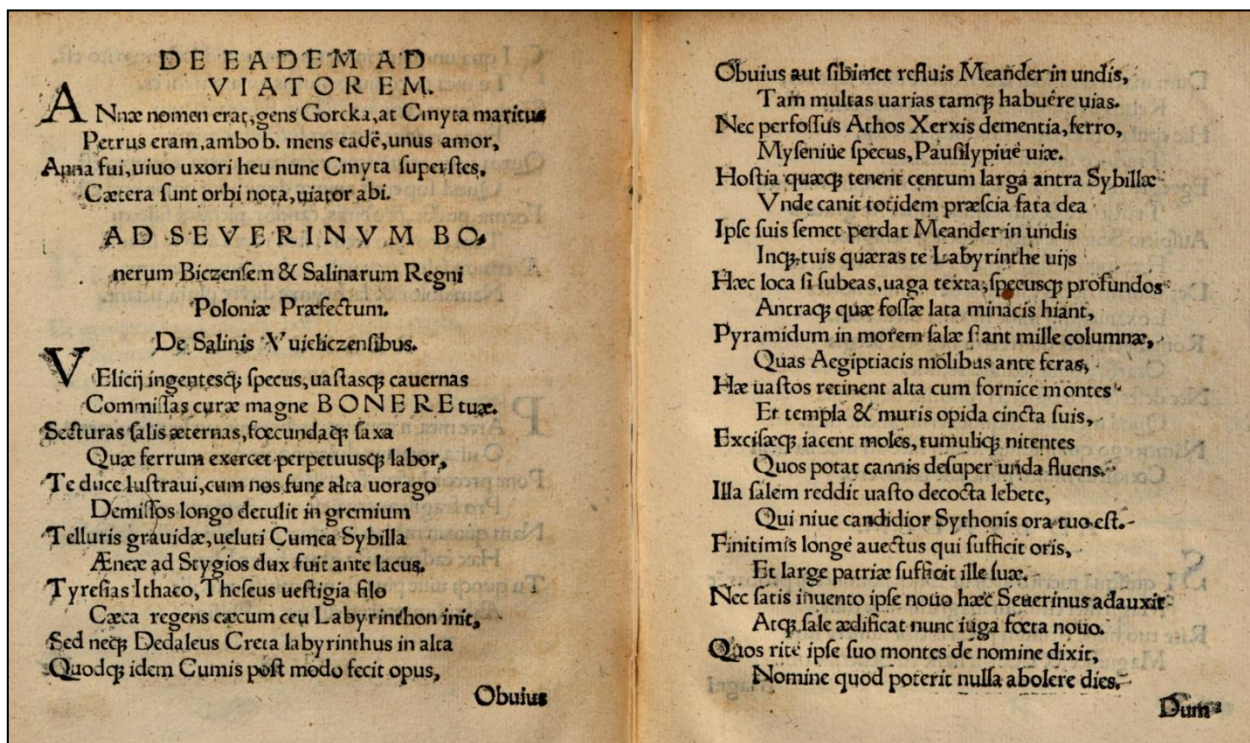 DE EADEM AD
VIATOREM.
ANnæ nomen erat, gens Gorcka, at Cmyta maritus
Petrus eram, ambo b. mens eadē, unus amor,
Anna fui, uiuo uxori heu nunc Cmyta superstes,
Cætera sunt orbi nota, uiator abi.
AD SEVERINVM BO-
nerum Biczensem & Salinarum Regni
Poloniæ Præfectum.
De Salinis Vuieliczensibus.
VElicij ingentesq; specus, uastasq; cauernas
Commissas curæ magne BONERE tuæ.
Secturas salis æternas, fœcundaq; saxa
Quæ ferrum exercet perpetuusq; labor,
Te duce lustraui, cum nos fune alta uorago
Demissos longo detulit in gremium
Telluris grauidæ, ueluti Cumea Sybilla
Æneæ ad Stygios dux fuit ante lacus.
Tyresias Ithaco, Theseus uestigia filo
Cæca regens cæcum ceu Labyrinthon init,
Sed neq; Dedaleus Creta labyrinthus in alta
Quodq; idem Cumis post modo fecit opus,
Obuius
Obuius aut sibimet refluis Meander in undis,
Tam multas uarias tamq; habuêre uias.
Nec perfossus Athos Xerxis dementia, ferro,
Myseniue specus, Pausilypiuè uiæ.
Hostia quæq; tenent centum larga antra Sybillæ
Vnde canit totidem præscia fata dea
Ipse suis semet perdat Meander in undis
Inq; tuis quæras te Labyrinthe uijs
Hæc loca si subeas, uaga texta, specusq; profundos
Antraq; quæ fossæ lata minacis hiant,
Pyramidum in morem salæ stant mille columnæ,
Quas Aegiptiacis molibus ante feras,
Hæ uastos retinent alta cum fornice montes
Et templa & muris opida cincta suis,
Excisæq; iacent moles, tumuliq; nitentes
Quos potat cannis desuper unda fluens.
Illa salem reddit uasto decocta lebete,
Qui niue candidior Sythonis ora tuo est.
Finitimis longè auectus qui sufficit oris,
Et large patriæ sufficit ille suæ.
Nec satis inuento ipse nouo hæc Seuerinus adauxit
Atq; sale ædificat nunc iuga fœta nouo.
Quos ritè ipse suo montes de nomine dixit,
Nomine quod poterit nulla abolere dies.
Dum